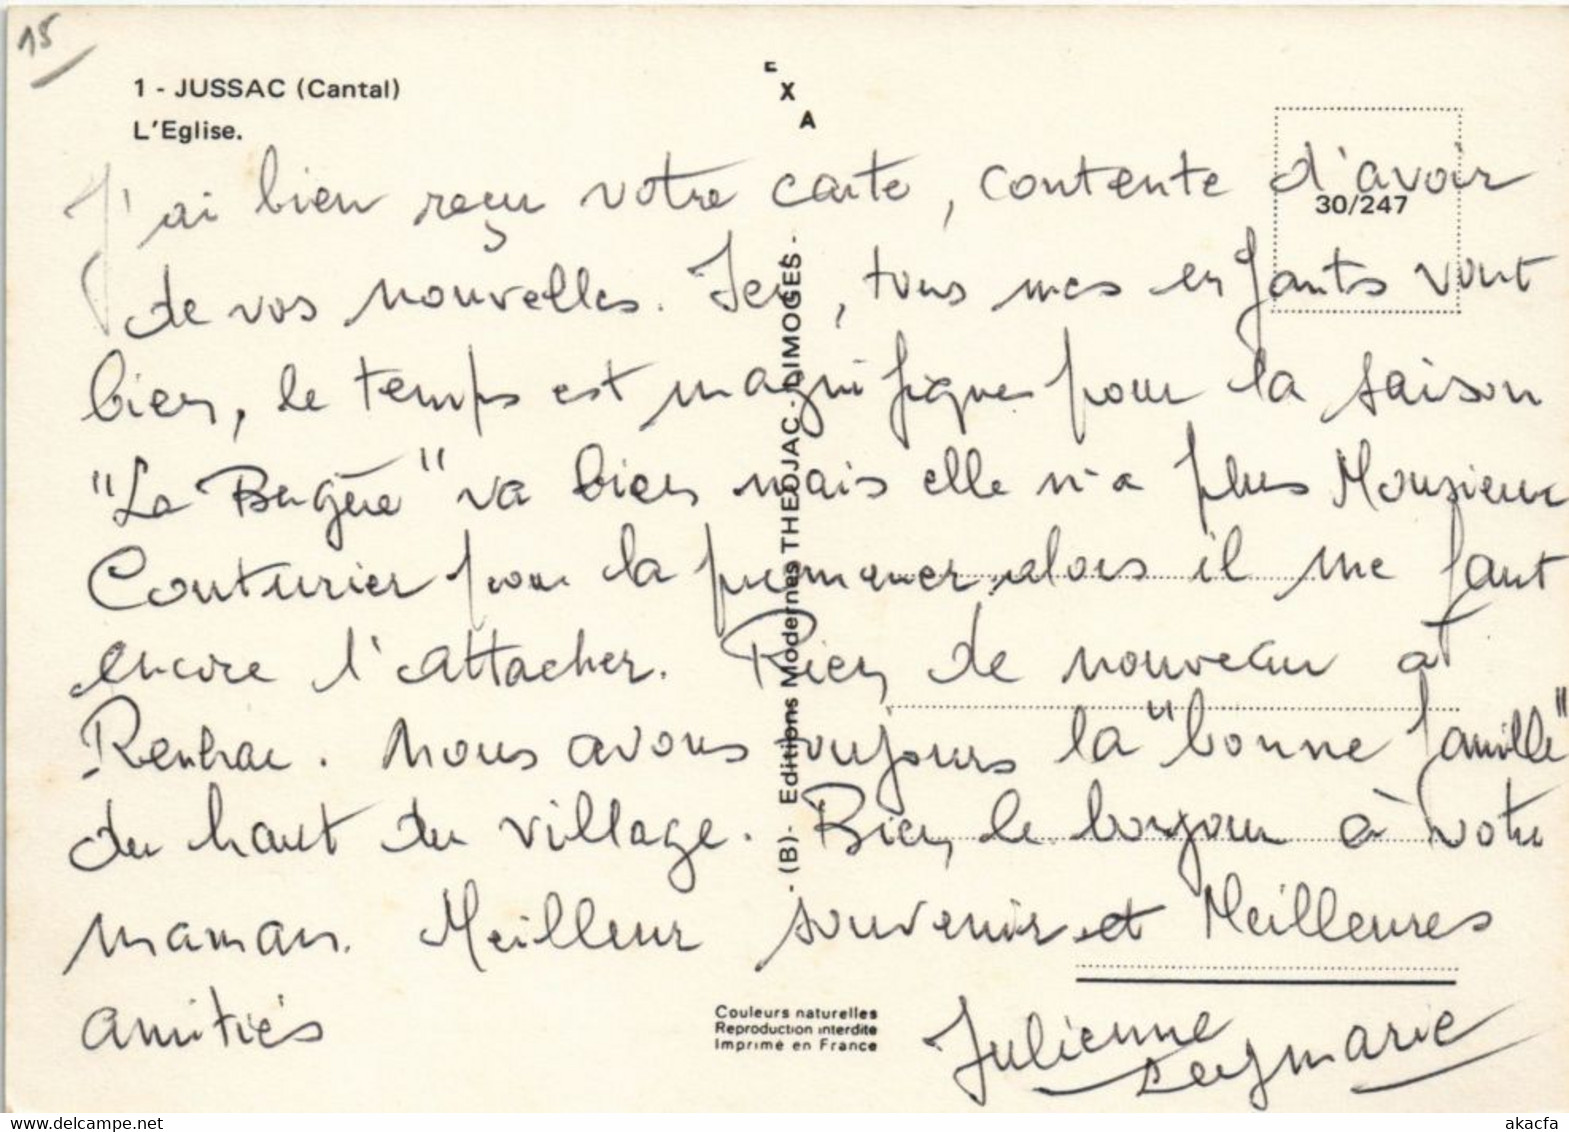 15
1 - JUSSAC (Cantal)
L'Eglise.
E
X
A
30/247
J'ai bien reçu votre carte, contente d'avoir
de vos nouvelles. Ici, tous mes enfants vont
bien, le temps est magnifique pour la saison
"La Bergère" va bien mais elle n'a plus Monsieur
Couturier pour la promener, alors il me faut
encore l'attacher. Rien de nouveau à
Reilhac. Nous avons toujours la "bonne famille"
du haut du village. Bien le bonjour à votre
maman. Meilleur souvenir et Meilleures
amitiés
Julienne
marie
- (B) - Editions Modernes THEOJAC - LIMOGES -
Couleurs naturelles
Reproduction interdite
Imprimé en France
www.delcampe.net
akacfa